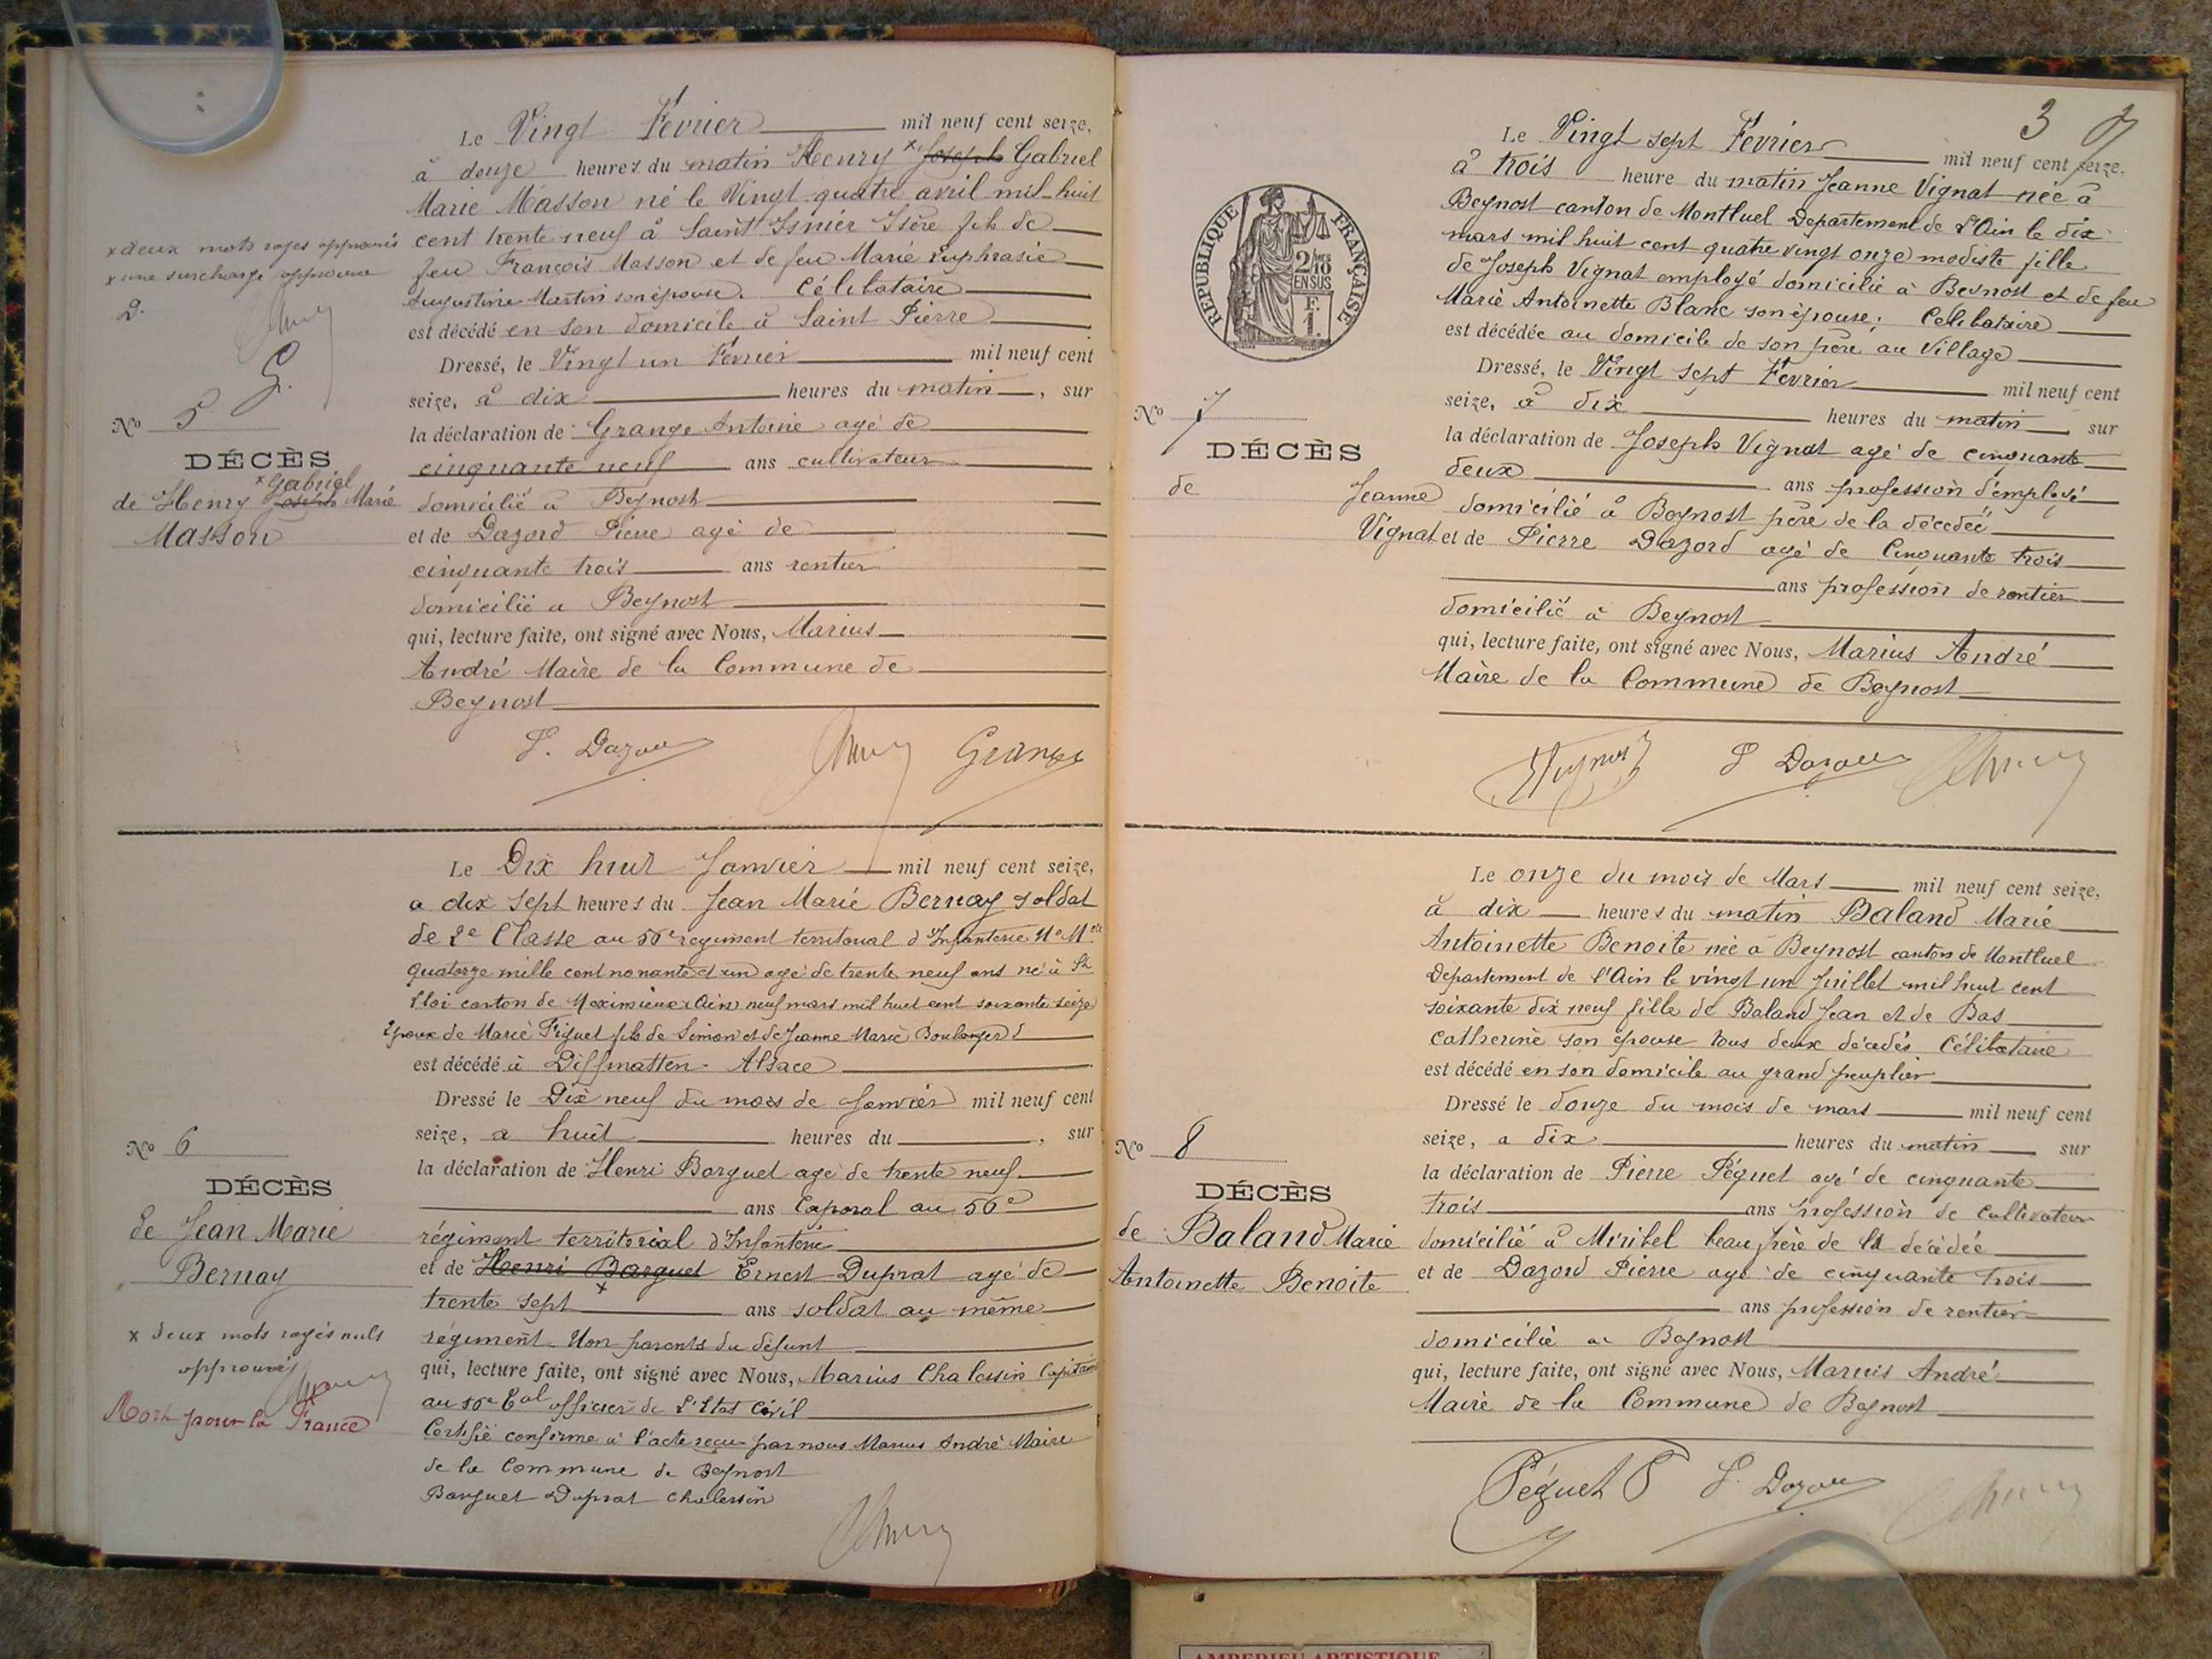 Le Vingt Fevrier mil neuf cent seize,
à douze heures du matin Henry x Joseph Gabriel
Marie Masson né le Vingt quatre avril mil huit
cent trente neuf à Saint Ismier Isère fils de
feu François Masson et de feu Marie Euphrasie
Augustine Martin son épouse. Célibataire
est décédé en son domicile à Saint Pierre
Dressé, le Vingt un Fevrier mil neuf cent
seize, à dix heures du matin, sur
la déclaration de Grange Antoine agé de
cinquante neuf ans cultivateur
domicilié à Beynost
et de Dazord Pierre agé de
cinquante trois ans rentier
domicilié a Beynost
qui, lecture faite, ont signé avec Nous, Marius
André Maire de la Commune de
Beynost
P. Dazord Grange
x deux mots rayés approuvés
x une surcharge approuvée
D.
G.
No 5
DÉCÈS
x Gabriel
de Henry Joseph Marie
Masson
Le Dix huit Janvier mil neuf cent seize,
a dix sept heures du Jean Marie Bernay soldat
de 2e Classe au 56e regiment territorial d'Infanterie No Mle
quatorze mille cent nonante et un agé de trente neuf ans né à St
Eloi canton de Meximieux (Ain) neuf mars mil huit cent soixante seize
époux de Marie Figuet fils de Simon et de Jeanne Marie Boulanger
est décédé à Diffmatten - Alsace
Dressé le Dix neuf du mois de Janvier mil neuf cent
seize, a huit heures du , sur
la déclaration de Henri Barguet agé de trente neuf
ans Caporal au 56e
régiment territorial d'Infanterie
et de Henri Barguet Ernest Duprat agé de
x
trente sept ans soldat au même
régiment. Non parents du défunt
qui, lecture faite, ont signé avec Nous, Marius Chalessin Capitaine
au 56e Eal officier de l'Etat Civil
Certifié conforme à l'acte reçu par nous Marius André Maire
de la Commune de Beynost
Barguet Duprat Chalessin
No 6
DÉCÈS
de Jean Marie
Bernay
x deux mots rayés nuls
approuvés
Mort pour la France
3
Le Vingt sept Fevrier mil neuf cent seize.
à trois heure du matin Jeanne Vignat née à
Beynost canton de Montluel Departement de l'Ain le dix
mars mil huit cent quatre vingt onze modiste fille
de Joseph Vignat employé domicilié à Beynost et de feu
Marie Antoinette Blanc son épouse; Célibataire
est décédée au domicile de son père au Village
Dressé, le Vingt sept Fevrier mil neuf cent
seize, à dix heures du matin sur
la déclaration de Joseph Vignat agé de cinquante
deux ans profession d'employé
domicilié à Beynost père de la décedée
et de Pierre Dazord agé de Cinquante trois
ans profession de rentier
domicilié à Beynost
qui, lecture faite, ont signé avec Nous, Marius André
Maire de la Commune de Beynost
P Dazord
REPUBLIQUE FRANÇAISE
2/10 MES
EN SUS
F.
1.
No 7
DÉCÈS
de Jeanne
Vignat
Le onze du mois de Mars mil neuf cent seize,
à dix heures du matin Baland Marie
Antoinette Benoite née à Beynost canton de Montluel
Departement de l'Ain le vingt un Juillet mil huit cent
soixante dix neuf fille de Baland Jean et de Bas
Catherine son épouse tous deux décédés Célibataire
est décédé en son domicile au grand peuplier
Dressé le douze du mois de mars mil neuf cent
seize, a dix heures du matin sur
la déclaration de Pierre Péguet agé de cinquante
trois ans profession de Cultivateur
domicilié à Miribel beau frère de la décédée
et de Dazord Pierre agé de cinquante trois
ans profession de rentier
domicilié a Beynost
qui, lecture faite, ont signé avec Nous, Marius André
Maire de la Commune de Beynost
Péguet P P. Dazord
No 8
DÉCÈS
de Baland Marie
Antoinette Benoite
AMBERIEU ARTISTIQUE